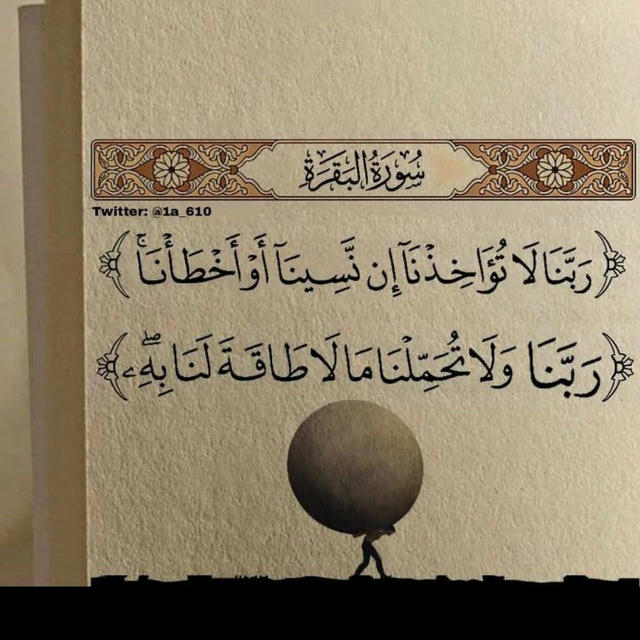 سُورَةُ البَقَرَةِ
Twitter: @1a_610
﴿رَبَّنَا لَا تُؤَاخِذْنَآ إِن نَّسِينَآ أَوْ أَخْطَأْنَا ۚ﴾
﴿رَبَّنَا وَلَا تُحَمِّلْنَا مَا لَا طَاقَةَ لَنَا بِهِۦ ۖ﴾